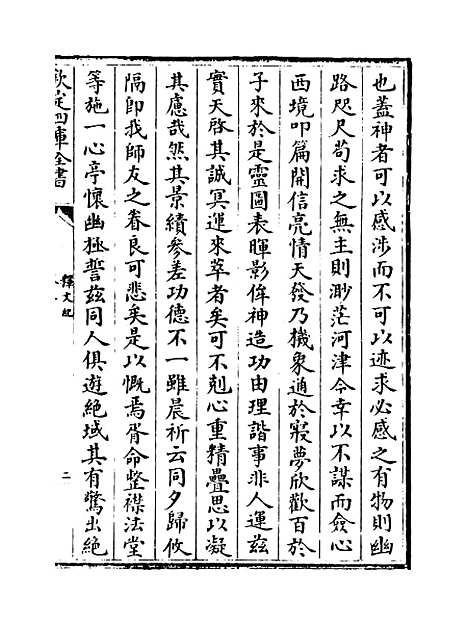 也蓋神者可以感涉而不可以迹求必感之有物則幽
路咫尺苟求之無主則渺茫河津今幸以不謀而僉心
西境叩篇開信亮情天發乃機象通於寢夢欣歡百於
子來於是靈圖表暉影侔神造功由理諧事非人運茲
實天啓其誠冥運來萃者矣可不剋心重精疊思以凝
其慮哉然其景績參差功德不一雖晨祈云同夕歸攸
隔即我師友之眷良可悲矣是以慨焉胥命整襟法堂
等施一心亭懷幽極誓茲同人俱遊絕域其有驚出絕
欽定四庫全書
釋文紀
二